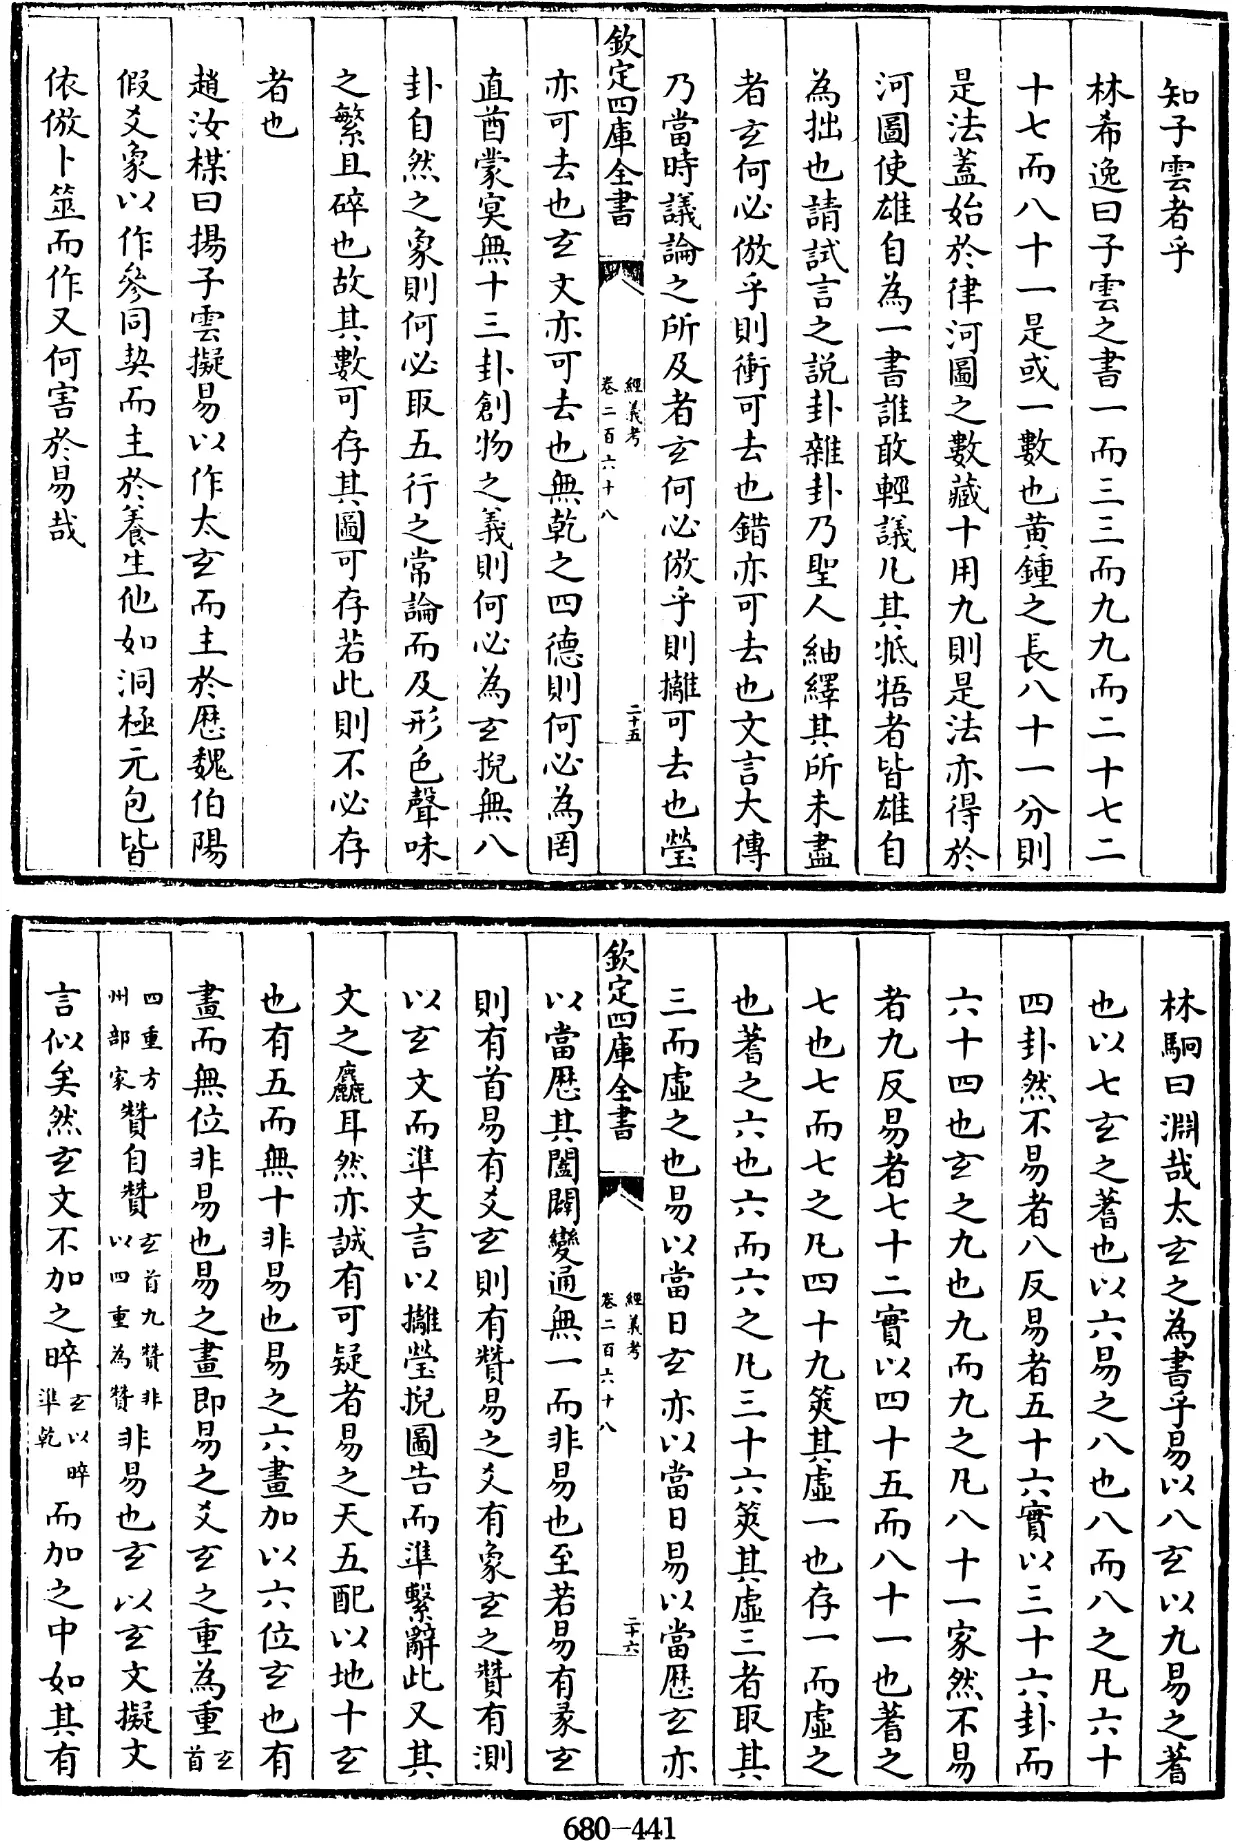 知子雲者乎
林希逸曰子雲之書一而三三而九九而二十七二
十七而八十一是或一數也黃鍾之長八十一分則
是法蓋始於律河圖之數藏十用九則是法亦得於
河圖使雄自為一書誰敢輕議凡其牴牾者皆雄自
為拙也請試言之説卦雜卦乃聖人紬繹其所未盡
者玄何必倣乎則衝可去也錯亦可去也文言大傳
乃當時議論之所及者玄何必倣乎則攡可去也瑩
欽定四庫全書
經義考
卷二百六十八
二十五
亦可去也玄文亦可去也無乾之四德則何必為罔
直酋蒙冥無十三卦創物之義則何必為玄掜無八
卦自然之象則何必取五行之常論而及形色聲味
之繁且碎也故其數可存其圖可存若此則不必存
者也
趙汝楳曰揚子雲擬易以作太玄而主於歷魏伯陽
假爻象以作參同契而主於養生他如洞極元包皆
依倣卜筮而作又何害於易哉
林駉曰淵哉太玄之為書乎易以八玄以九易之蓍
也以七玄之蓍也以六易之八也八而八之凡六十
四卦然不易者八反易者五十六實以三十六卦而
六十四也玄之九也九而九之凡八十一家然不易
者九反易者七十二實以四十五而八十一也蓍之
七也七而七之凡四十九筴其虛一也存一而虛之
也蓍之六也六而六之凡三十六筴其虛三者取其
三而虛之也易以當日玄亦以當日易以當歷玄亦
欽定四庫全書
經義考
卷二百六十八
二十六
以當歷其闔闢變通無一而非易也至若易有彖玄
則有首易有爻玄則有贊易之爻有象玄之贊有測
以玄文而準文言以攡瑩掜圖告而準繫辭此又其
文之麤耳然亦誠有可疑者易之天五配以地十玄
也有五而無十非易也易之六畫加以六位玄也有
畫而無位非易也易之畫即易之爻玄之重為重玄首
四重方州部家贊自贊玄首九贊非以四重為贊非易也玄以玄文擬文
言似矣然玄文不加之睟玄以睟準乾而加之中如其有
680-441